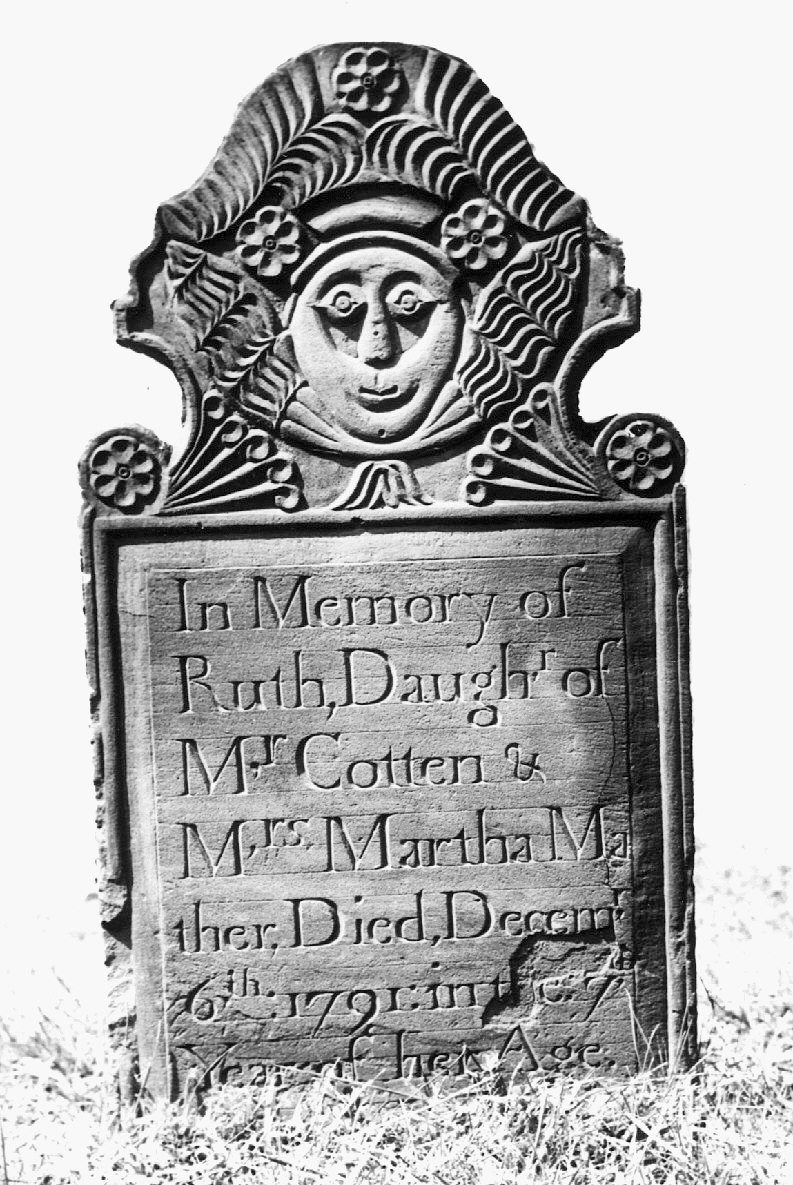 In Memory of
Ruth, Daughr of
Mr Cotten &
Mrs Martha Ma
ther, Died, Decemr
6th 1791: in 7th
Year of her Age.